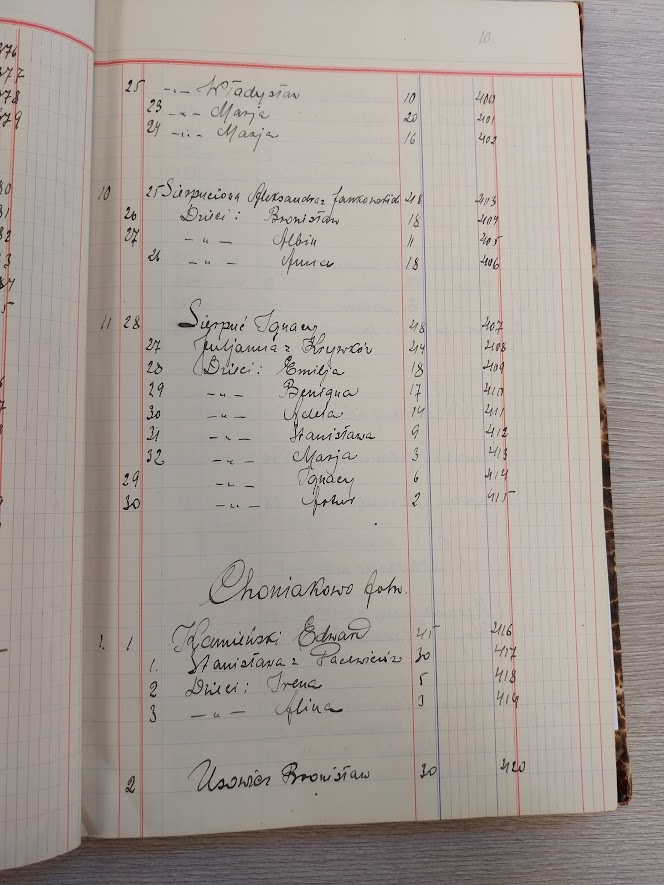 10
376
377
378
379
25 -"- Władysław 10 400
23 -"- Marja 20 401
24 -"- Marja 16 402
10 25 Sierpuciowa Aleksandra z Jankowskich 48 403
26 Dzieci: Bronisław 18 404
27 -"- Albin 11 405
26 -"- Anna 18 406
11 28 Sierpuć Ignacy 48 407
27 Juljanna z Krywków 44 408
28 Dzieci: Emilja 18 409
29 -"- Benigna 17 410
30 -"- Adela 14 411
31 -"- Stanisława 9 412
32 -"- Marja 3 413
29 -"- Ignacy 6 414
30 -"- 2 415
Choniakowo folw.
1. 1 Kamieński Edward 45 416
1. Stanisława z 30 417
2 Dzieci: Irena 5 418
3 -"- Alina 3 419
2 Usowicz Bronisław 30 420